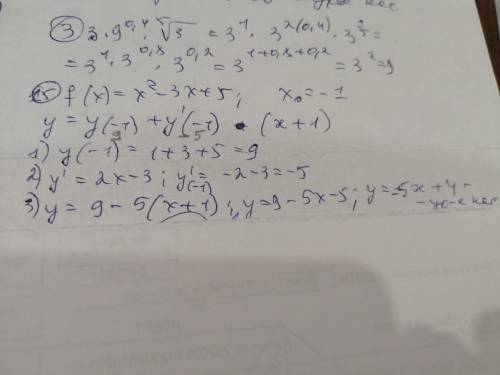 ур-е кас.
③ 3 · 9^0,4 · ⁵√3 = 3^1 · 3^2(0,4) · 3^1/5 =
= 3^1 · 3^0,8 · 3^0,2 = 3^1+0,8+0,2 = 3^2 = 9
15 f(x) = x² - 3x + 5; x₀ = -1
y = y(-1) + y'(-1) · (x+1)
9 -5
1) y(-1) = 1 + 3 + 5 = 9
2) y' = 2x - 3; y'(-1) = -2 - 3 = -5
3) y = 9 - 5(x+1); y = 9 - 5x - 5; y = -5x + 4 -
- ур-е кас